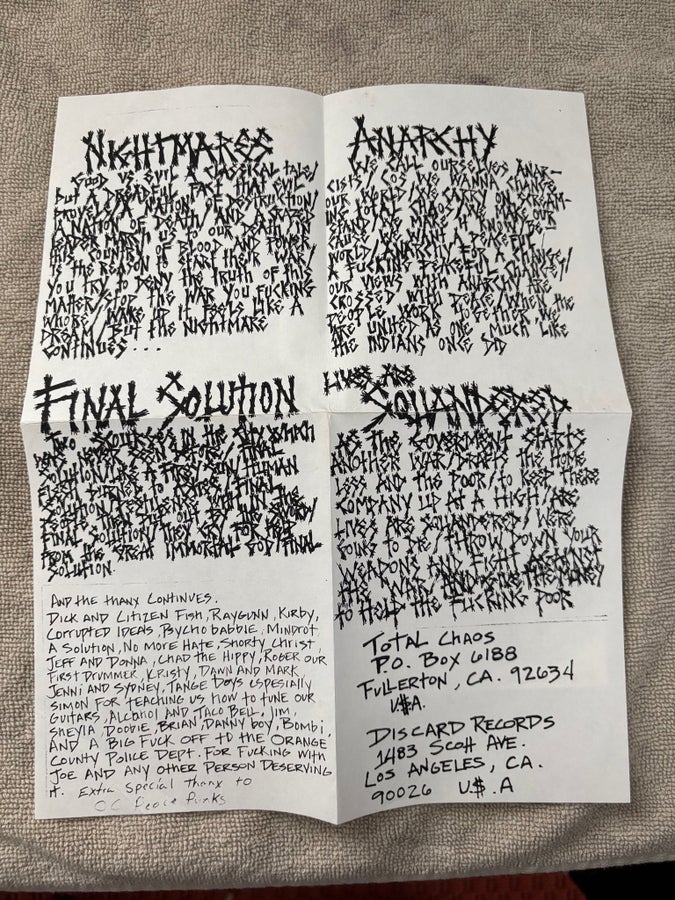 NIGHTMARES
GOOD VS EVIL A CLASSICAL TALE/
BUT A DREADFUL FACT THAT EVIL
PROVEL/A NATION OF DESTRUCTION/
A NATION OF DEATH/AND A CRAZED
LEADER MARCH US TO OUR DEATH IN
THIS COUNTRY OF BLOOD AND POWER
IS THE REASON TO START THEIR WAR/
YOU TRY TO DENY THE TRUTH OF THIS
MATTER/STOP THE WAR YOU FUCKING
WHORE/WAKE UP IT FEELS LIKE A
DREAM/BUT THE NIGHTMARE
CONTINUES...
ANARCHY
WE CALL OURSELVES ANAR-
CISTS/COS WE WANNA CHANGE
OUR WORLD/WE CARRY ON SCREAM-
ING TOTAL CHAOS AND MAKE OUR
STAND
CAUSE WE WANT A PEACEFUL
WORLD/ANARCHY FOR A CHANGE/
A FUCKING PEACEFUL CHANGE/
OUR VIEWS WITH ANARCHY ARE
CROSSED WITH PEACE/WHEN THE
PEOPLE WORK TOGETHER WE
ARE UNITED AS ONE MUCH LIKE
THE INDIANS ONCE DID
FINAL SOLUTION
TWO SOURSES IN THE SKY WHICH
HAD NEVER SEEN BEFORE/FINAL
SOLUTION/LIKE A FIREY SUN/HUMAN
FLESH BURNED TO ASHES/FINAL
SOLUTION/PESTILENCE WITHIN THE
PEOPLE THEN DIE OUT BY THE SWORD/
FINAL SOLUTION/THEY CRY FOR HELP
FROM THE GREAT IMMORTAL GOD/FINAL
SOLUTION.
LIVES ARE
SQUANDERED
AS THE GOVERMENT STARTS
ANOTHER WAR/DRAFTS THE HOME
LESS AND THE POOR/TO KEEP THERE
COMPANY UP AT A HIGH/ARE
LIVES ARE SQUANDERED/WERE
GOING TO DIE/THROW DOWN YOUR
WEAPONS AND FIGHT AGAINST
THIS WAR AND GIVE THE MONEY
TO HELP THE FUCKING POOR
AND THE THANX CONTINUES.
DICK AND CITIZEN FISH, RAYGUNN, KIRBY,
CORRUPTED IDEAS, PSYCHO BABBLE, MINDROT
A SOLUTION, NO MORE HATE, SHORTY, CHRIST,
JEFF AND DONNA, CHAD THE HIPPY, ROGER OUR
FIRST DRUMMER, KRISTY, DAWN AND MARK,
JENNI AND SYDNEY, TANGE DOYS ESPESIALLY
SIMON FOR TEACHING US HOW TO TUNE OUR
GUITARS, ALCOHOL AND TACO BELL, JIM,
SHEYLA, DOOBIE, BRIAN, DANNY BOY, BOMBI,
AND A BIG FUCK OFF TO THE ORANGE
COUNTY POLICE DEPT. FOR FUCKING WITH
JOE AND ANY OTHER PERSON DESERVING
IT. Extra Special Thanx to
OC Peace Punks
TOTAL CHAOS
P.O. BOX 6188
FULLERTON, CA. 92634
U$A.
DISCARD RECORDS
1483 SCOTT AVE.
LOS ANGELES, CA.
90026 U.$.A